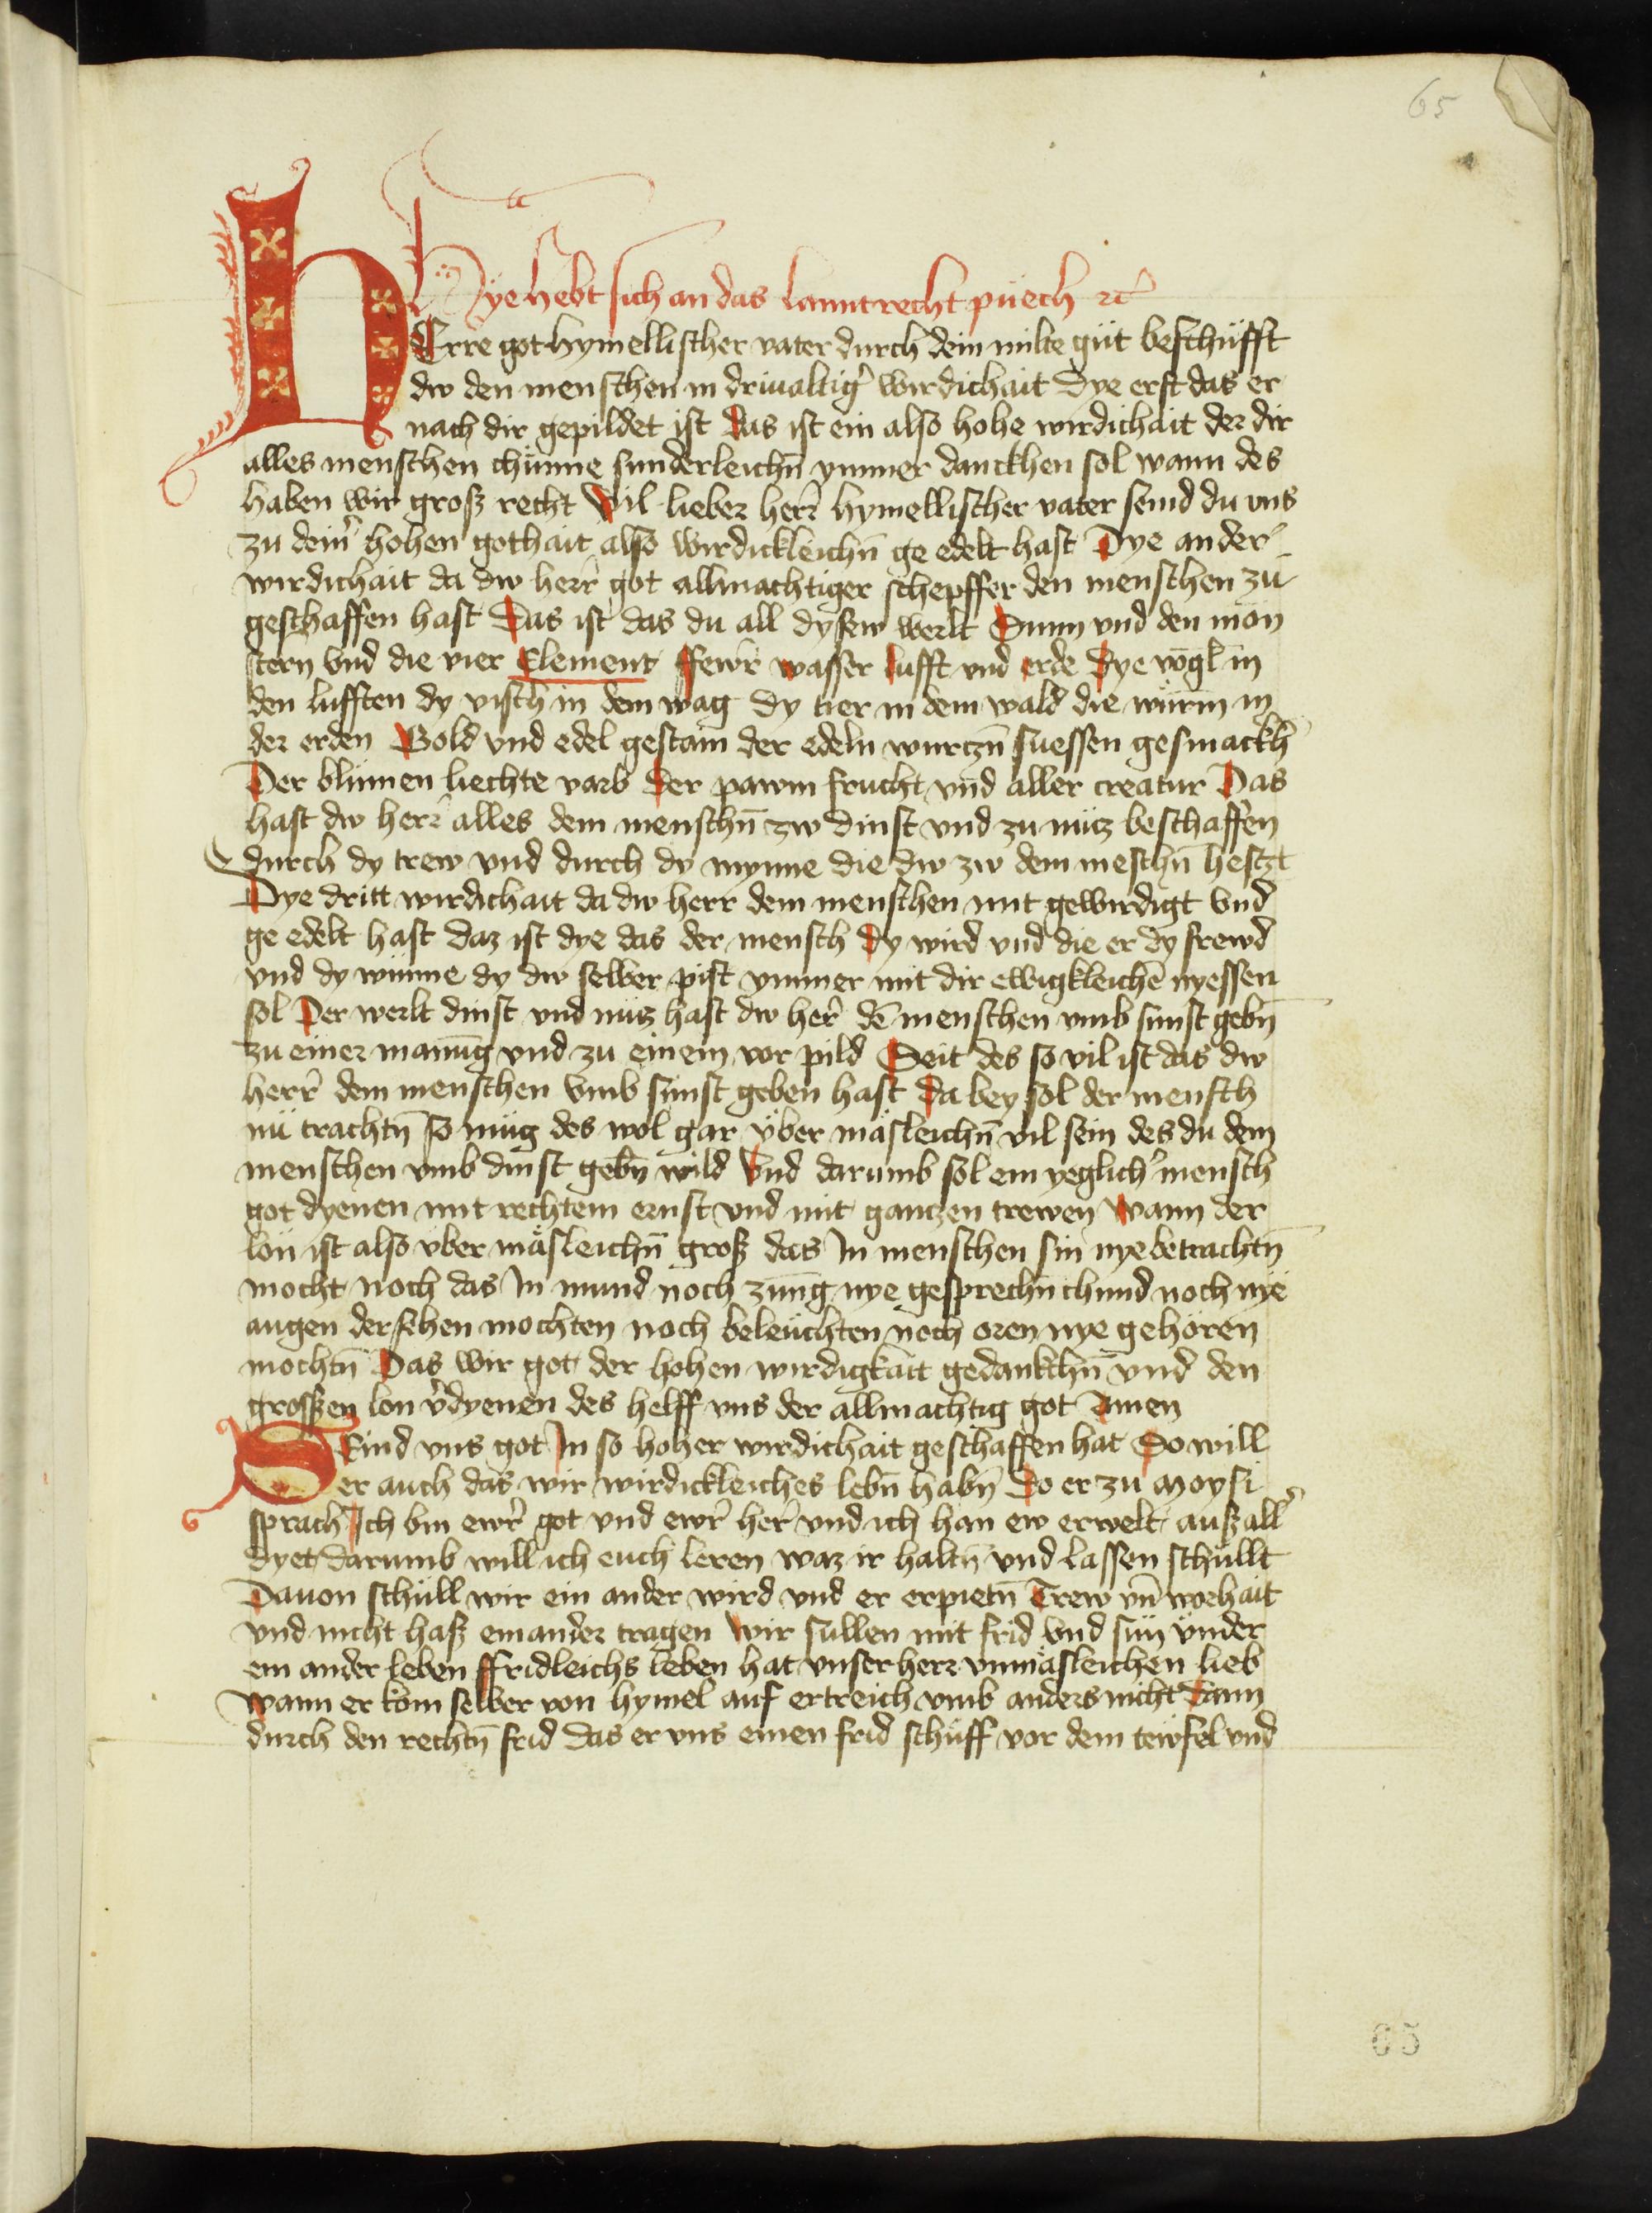 65
Hye hebt sich an das lanntrecht püech ꝛc̄
HErre got hymellischer vater durch dein milte güt beschüfft
dw den menschen in driualtigʼ wirdichait Dye erst das er
nach dir gepildet ist das ist ein also hohe wirdichait der dir
alles menschen chünne sunderleichn̄ ymmer danckhen sol wann des
haben wir groß recht Vil lieber herr̄ hymellischer vater seind du vns
zu deinʼ hohen gothait also wirdickleichn̄ ge edelt hast Dye anderʼ
wirdichait da dw herr̄ got allmachtiger schepffer den menschen zu
geschaffen hast Das ist das du all dysew werlt Sunn vnd den mön
stern vnd die vier Element ffewʼr wasser lufft vnd erde Dye vögl in
den lufften dy visch in dem wag dy tier in dem wald die würm̄ in
der erden Gold vnd edel gestain der edeln wurczn̄ suessen gesmackhʼ
Der blümen liechte varb der pawm frucht vnd aller creatur Das
hast dw herr̄ alles dem menschn̄ zw dinst vnd zu nücz beschaffen
durch dy trew vnd durch dy mynne die dw zw dem meschn̄ hestzt
Dye dritt wirdichait da dw herr dem menschen mit gewirdigt vnd
ge edelt hast daz ist dye das der mensch dy wird vnd die er dy frewd
vnd dy wünne dy dw selber pist ymmer mit dir ewigkleichē nyessen
sol Der werlt dinst vnd nücz hast dw herʼ dē menschen vmb sunst gebn̄
zu einer manūg vnd zu einem vor pild Seit des so vil ist das dw
herr̄ dem menschen vmb sünst geben hast da bey sol der mensch
nü trachtn̄ so müg des wol gar über mäsleichn̄ vil sein des du dem
menschen vmb dinst gebn̄ wild Vnd darumb sol ein yeglichʼ mensch
got dyenen mit rechtem ernst vnd mit ganczen trewen wann der
lön ist also über mäsleichn̄ groß das In menschen sin nye betrachtn̄
mocht noch das In mund noch zūng nye gesprechn̄ chund noch nye
augen der sehen mochten noch beleüchten noch oren nye gehören
mochtn̄ Das wir got der hohen wirdigkait gedanckhn̄ vnd den
grossen lon vʼdyenen des helff vns der allmachtig got Amen
SEind vns got In so hoher wirdichait geschaffen hat So will
er auch das wir wirdickleiches lebn̄ habn̄ Do er zu moysi
sprach Ich bin ewrʼ got vnd ewrʼ herʼ vnd ich han ew erwelt auß allʼ
dyet darumb will ich euch leren waz ir haltn̄ vnd lassen schüllt
Dauon schüll wir ein ander wird vnd er erpietn̄ Trew vn̄ worhait
vnd nicht haß einander tragen wir süllen mit frid vnd sün vnder
ein ander leben ffridleichs leben hat vnser herr vnmäsleichen lieb
wann er kom selber von hymel auf ertreich vmb anders nicht dann
durch den rechtn̄ frid das er vns einen frid schüff vor dem tewfel vnd
65